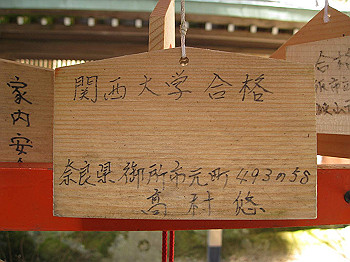 関西大学合格
奈良県御所市元町493の58
高村悠
家内安
合格